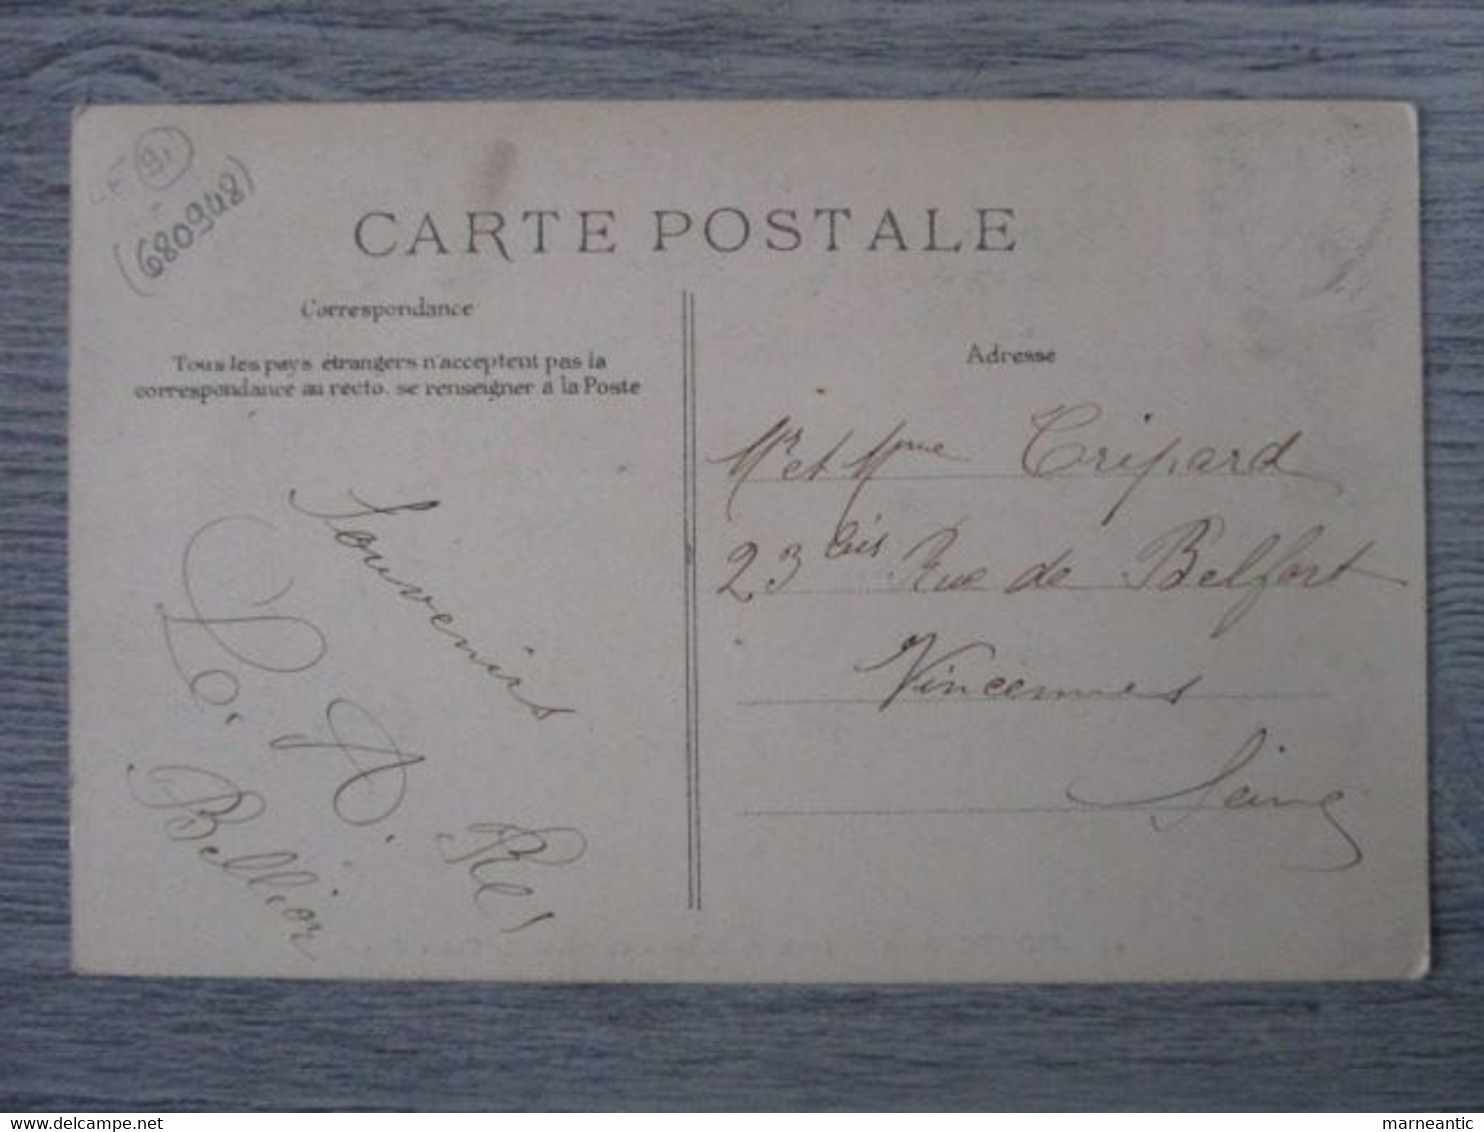 91
(680948)
CARTE POSTALE
Correspondance
Tous les pays étrangers n'acceptent pas la
correspondance au recto. se renseigner à la Poste
Adresse
Mr et Mme Tripard
23 bis Rue de Belfort
Vincennes
Seine
Souvenirs
Bellior
delcampe.net
marneantic